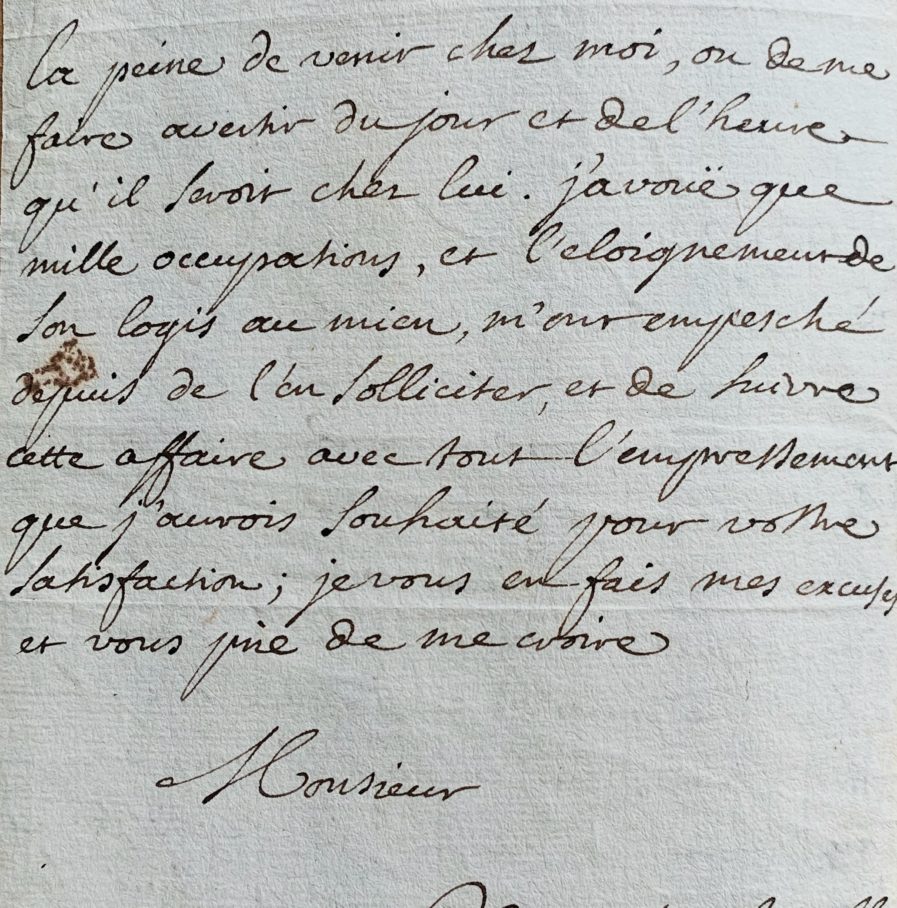 la peine de venir chez moi, ou de me
faire avertir du jour et de l'heure
qu'il seroit chez lui. j'avoüe que
mille occupations, et l'eloignement de
son logis au mien, m'ont empesché
depuis de l'en solliciter, et de suivre
cette affaire avec tout l'empressement
que j'aurois souhaité pour vostre
satisfaction; je vous en fais mes excuses
et vous prie de me croire
Monsieur